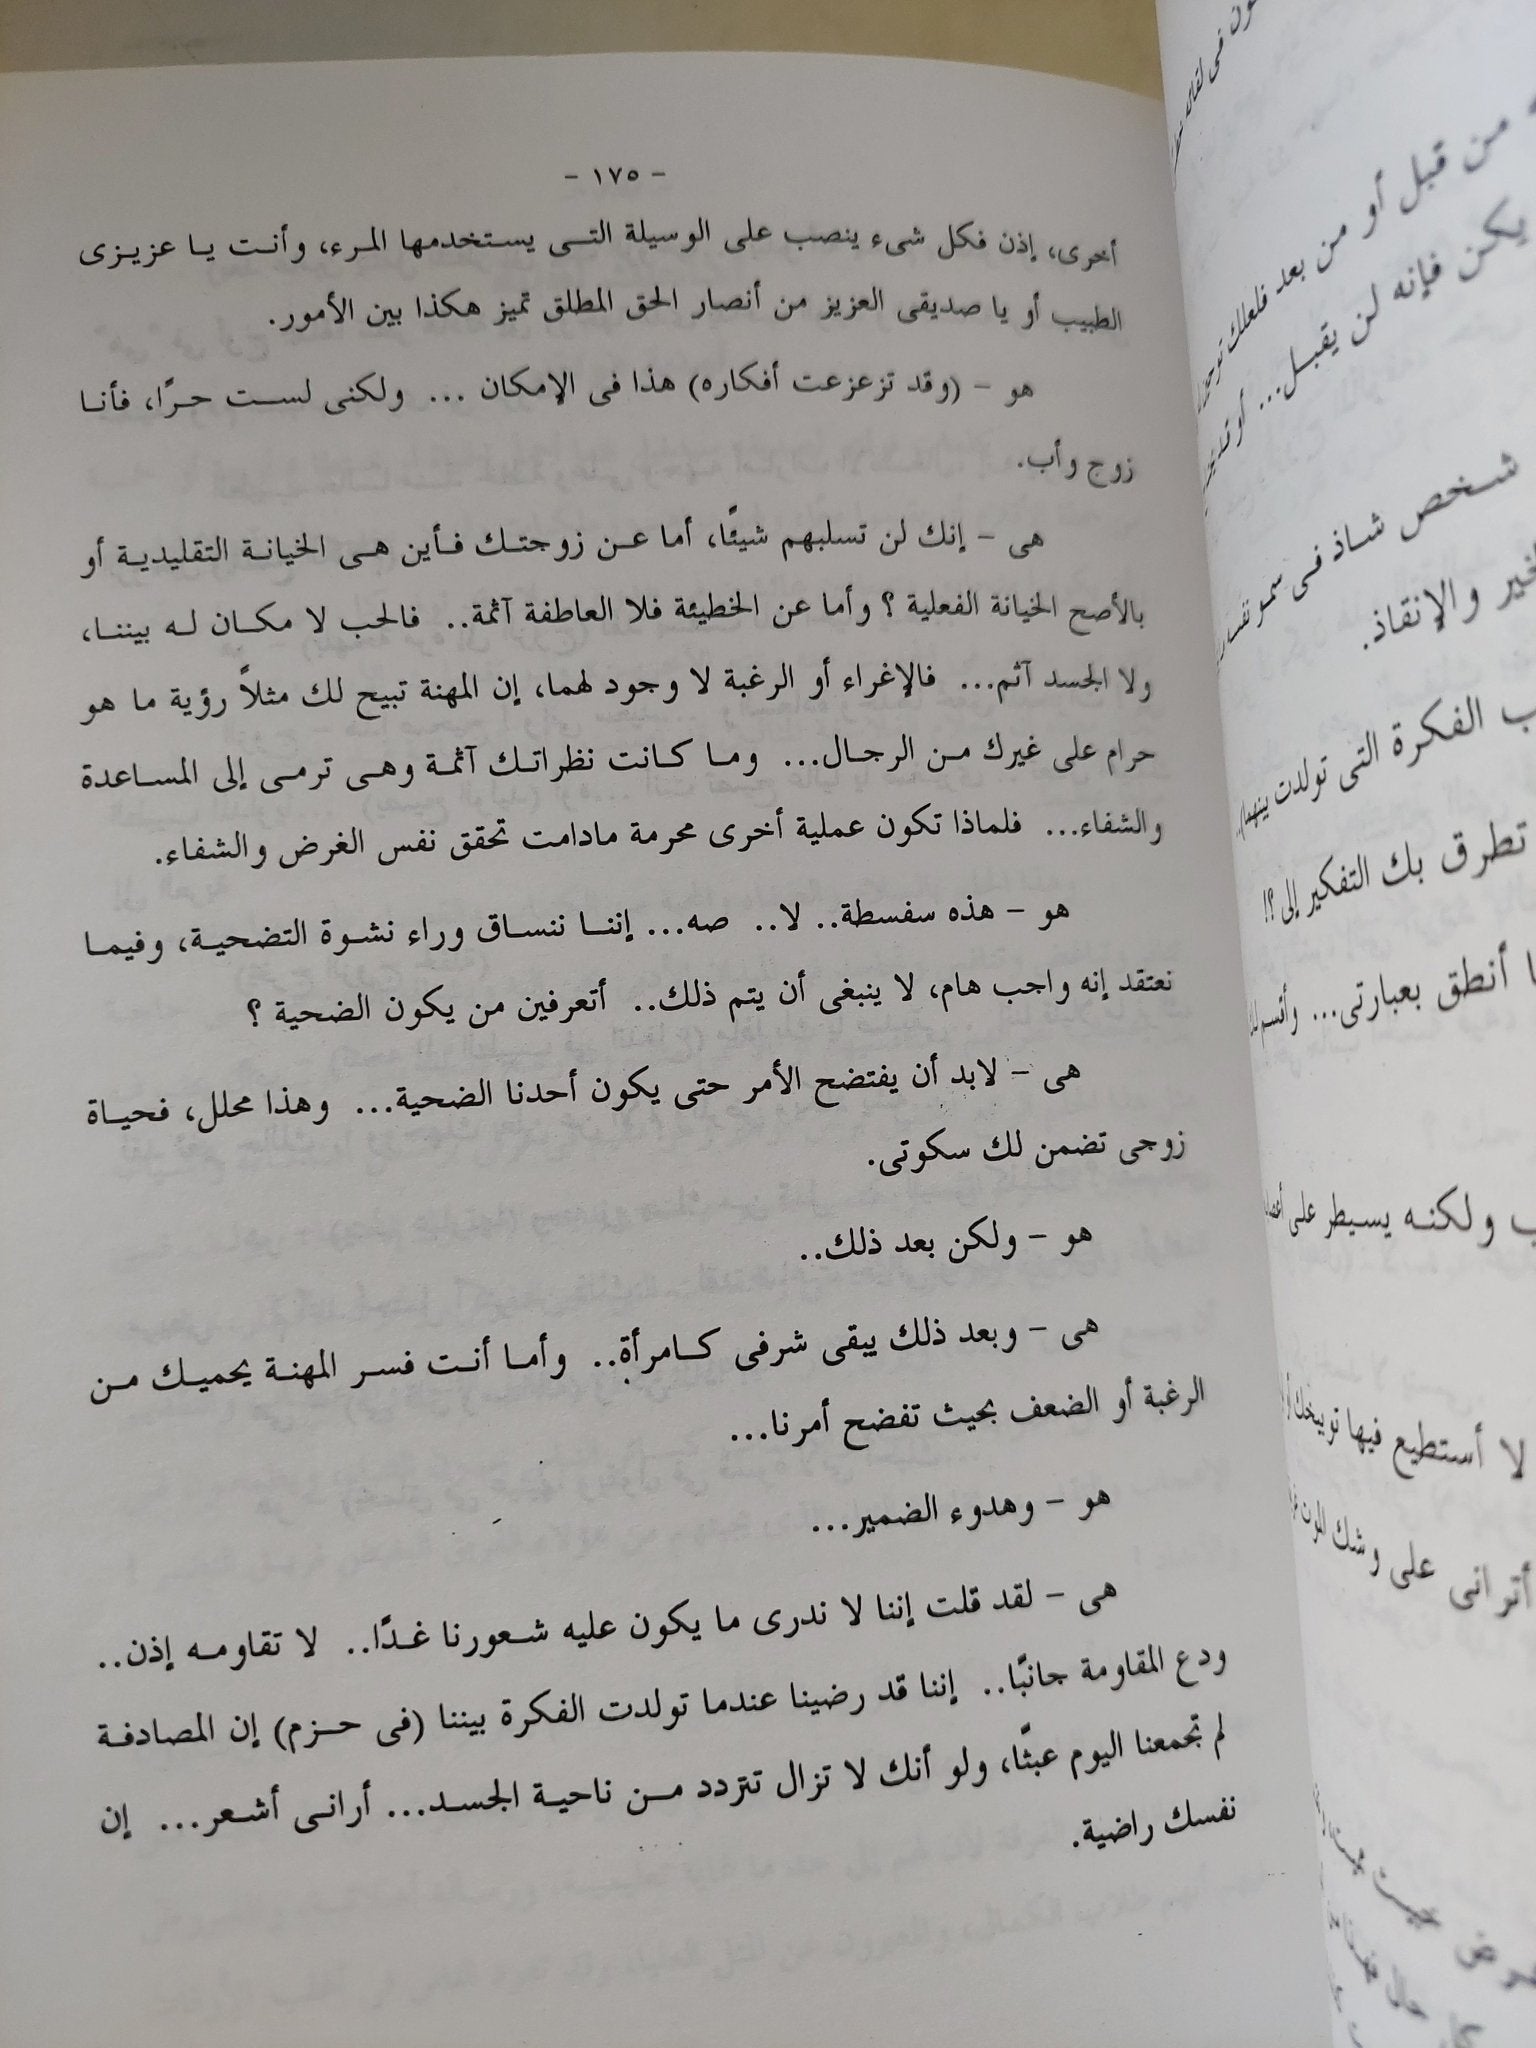 - ١٧٥ -
أخرى، إذن فكل شىء ينصب على الوسيلة التـى يستخدمها المرء، وأنت يا عزيزى
الطبيب أو يا صديقى العزيز من أنصار الحق المطلق تميز هكذا بين الأمور.
هو - (وقد تزعزعت أفكاره) هذا فى الإمكان ... ولكنى لست حرًا، فأنا
زوج وأب.
هى - إنك لن تسلبهم شيئًا، أما عن زوجتك فأين هى الخيانة التقليدية أو
بالأصح الخيانة الفعلية ؟ وأما عن الخطيئة فلا العاطفة آثمة.. فالحب لا مكان له بيننا،
ولا الجسد آثم... فالإغراء أو الرغبة لا وجود لهما، إن المهنة تبيح لك مثلاً رؤية ما هو
حرام على غيرك من الرجال... وما كانت نظراتك آثمة وهى ترمى إلى المساعدة
والشفاء... فلماذا تكون عملية أخرى محرمة مادامت تحقق نفس الغرض والشفاء.
هو - هذه سفسطة.. لا.. صه... إننا ننساق وراء نشوة التضحية، وفيما
نعتقد إنه واجب هام، لا ينبغى أن يتم ذلك.. أتعرفين من يكون الضحية ؟
هى - لابد أن يفتضح الأمر حتى يكون أحدنا الضحية... وهذا محلل، فحياة
زوجى تضمن لك سكوتى.
هو - ولكن بعد ذلك..
هى - وبعد ذلك يبقى شرفى كامرأة.. وأما أنت فسر المهنة يحميك من
الرغبة أو الضعف بحيث تفضح أمرنا...
هو - وهدوء الضمير...
هى - لقد قلت إننا لا ندرى ما يكون عليه شعورنا غدًا.. لا تقاومه إذن..
ودع المقاومة جانبًا.. إننا قد رضينا عندما تولدت الفكرة بيننا (فى حزم) إن المصادفة
لم تجمعنا اليوم عبثًا، ولو أنك لا تزال تتردد من ناحية الجسد... أرانى أشعر... إن
نفسك راضية.
من قبل أو من بعد فلعلك
يكن فإنه لن يقبل...
شخص شاذ فى سمو
والإنقاذ.
الفكرة التى تولدت بينهما)..
تطرق بك التفكير إلى ؟!
أنطق بعبارتى... وأقسم
ولكنه يسيطر على
لا أستطيع فيها توبيخك
أترانى على وشك الموت